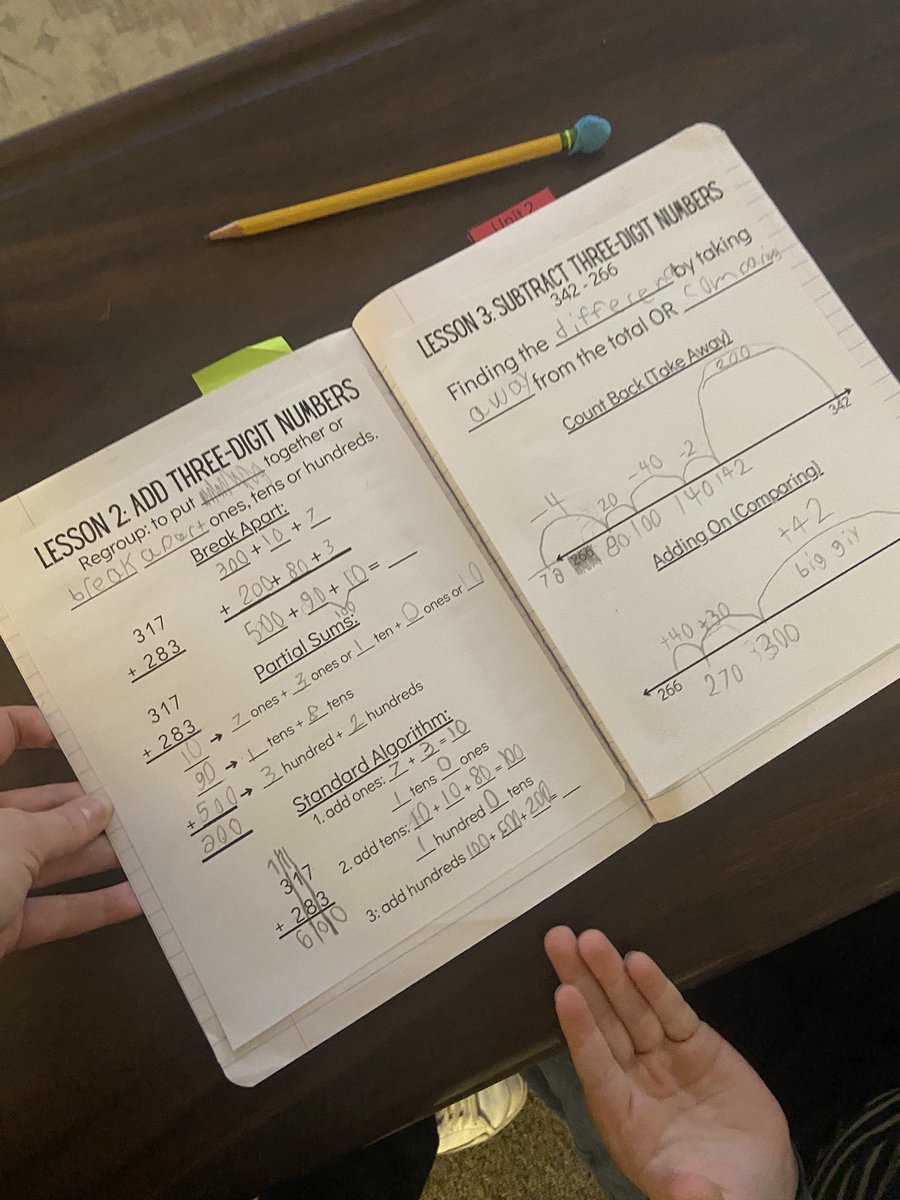 LESSON 2: ADD THREE-DIGIT NUMBERS
Regroup: to put together or
break apart ones, tens or hundreds.
Break Apart:
300 + 10 + 7
317
+ 283
+ 200 + 80 + 3
500 + 90 + 10 = __
100
Partial Sums:
317
+ 283
10 → 7 ones + 3 ones or 1 ten + 0 ones or 10
90 → 1 tens + 8 tens
+ 500 → 3 hundred + 2 hundreds
200
Standard Algorithm:
1. add ones: 7 + 3 = 10
1 tens 0 ones
317
+ 283
600
2. add tens: 10 + 10 + 80 = 100
1 hundred 0 tens
3: add hundreds 100 + 500 + 200 = __
Unit 2
LESSON 3: SUBTRACT THREE-DIGIT NUMBERS
342 - 266
Finding the by taking
away from the total OR
Count Back (Take Away)
200
-4 20 -40 -2 342
78 266 80 100 140 142
Adding On (Comparing)
+42
+40 +30
266 270 300